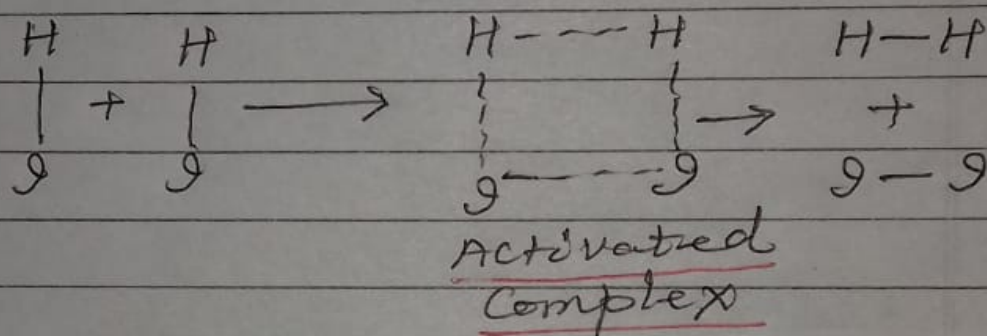 H H H - - - H H — H
| + | → | | → +
I I I - - - - I I — I
Activated
Complex